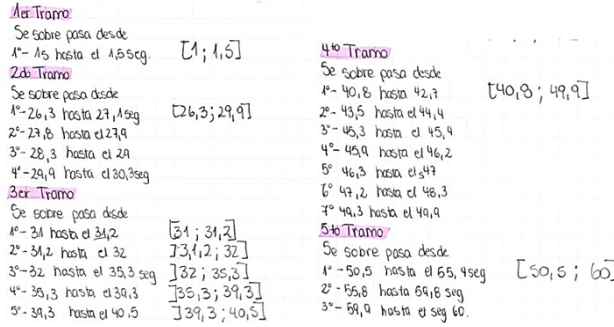 1er Tramo
Se sobre pasa desde
1º- 1s hasta el 1,5seg. [1 ; 1,5]
2do Tramo
Se sobre pasa desde
1º- 26,3 hasta 27,1seg [26,3 ; 29,9]
2º- 27,8 hasta el 27,9
3º- 28,3 hasta el 29
4º- 29,9 hasta el 30,3seg
3er Tramo
Se sobre pasa desde
1º- 31 hasta el 31,2 [31 ; 31,2]
2º- 31,2 hasta el 32 ]3,1,2 ; 32]
3º- 32 hasta el 35,3 seg ]32 ; 35,3]
4º- 35,3 hasta el 39,3 ]35,3 ; 39,3]
5º- 39,3 hasta el 40,5 ]39,3 ; 40,5]
4to Tramo
Se sobre pasa desde
1º- 40,8 hasta 42,7 [40,8 ; 49,9]
2º- 43,5 hasta el 44,4
3º- 45,3 hasta el 45,4
4º- 45,9 hasta el 46,2
5º 46,3 hasta el 47
6º 47,2 hasta el 48,3
7º 49,3 hasta el 49,9
5to Tramo
Se sobre pasa desde
1º - 50,5 hasta el 55,4seg [50,5 ; 60]
2º - 55,8 hasta 59,8 seg
3º - 59,9 hasta el seg 60.